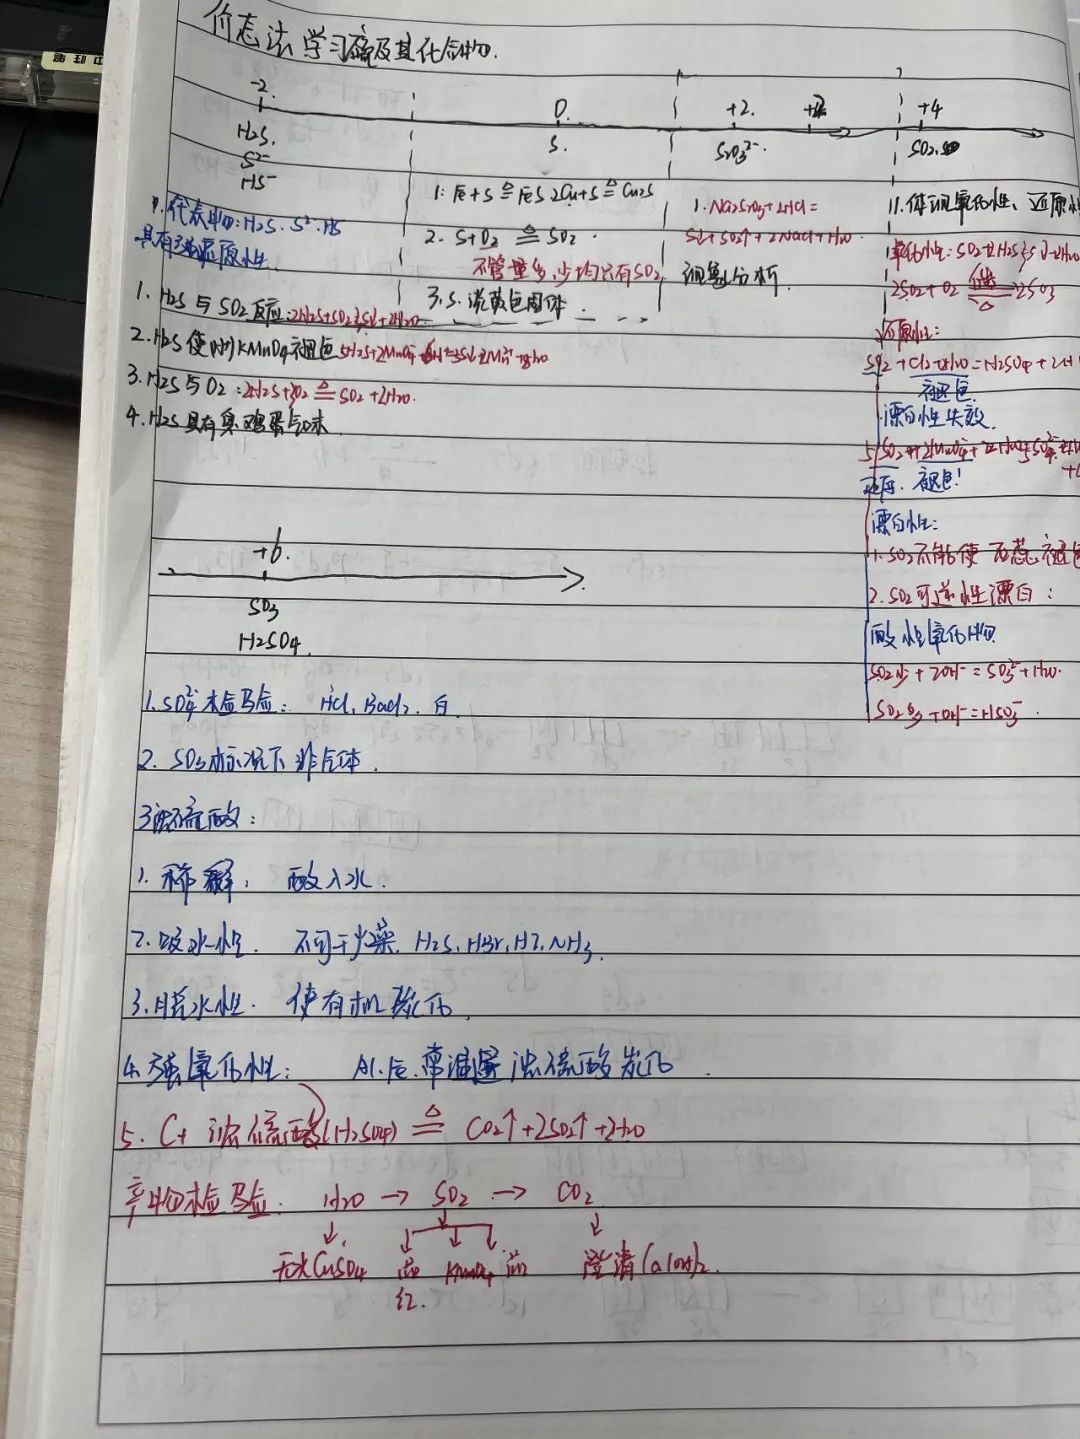 价态法学习硫及其化合物.
-2. 0. +2. +4
H2S. S. S2O3²⁻. SO2.
S²⁻
HS⁻
1.代表物:H2S. S²⁻. HS
具有强还原性.
1. H2S 与 SO2反应:2H2S+SO2=3S↓+2H2O.
2. H2S 使 KMnO4褪色
3. H2S与O2:2H2S+3O2 ≜ SO2+2H2O.
4. H2S具有臭鸡蛋气味
1: Fe+S ≜ FeS 2Cu+S ≜ Cu2S
2. S+O2 ≜ SO2.
不管量多,少均只有SO2
3. S. 淡黄色固体.
1. Na2S2O3+2HCl=
S↓+SO2↑+2NaCl+H2O.
现象分析.
1. 体现氧化性、还原性
氧化性:SO2+2H2S=3S↓+2H2O
2SO2+O2 2SO3
还原性:
SO2+Cl2+2H2O=H2SO4+2H
褪色.
漂白性失效.
褪色!
漂白性:
1. SO2不能使石蕊褪色
2. SO2可逆性漂白:
酸性氧化物
SO2少+2OH⁻=SO3²⁻+H2O.
SO2多+OH⁻=HSO3⁻.
+6.
SO3
H2SO4.
1. SO4²⁻检验: HCl, BaCl2. 白.
2. SO3标况下非气体.
3浓硫酸:
1. 稀释: 酸入水.
2. 吸水性. 不可干燥. H2S, HBr, HI, NH3.
3. 脱水性. 使有机碳化.
4. 强氧化性: Al. Fe. 常温遇浓硫酸炭化.
5. C+浓硫酸(H2SO4) ≜ CO2↑+2SO2↑+2H2O
产物检验: H2O → SO2 → CO2
无水CuSO4 品红. KMnO4 品 澄清Ca(OH)2.